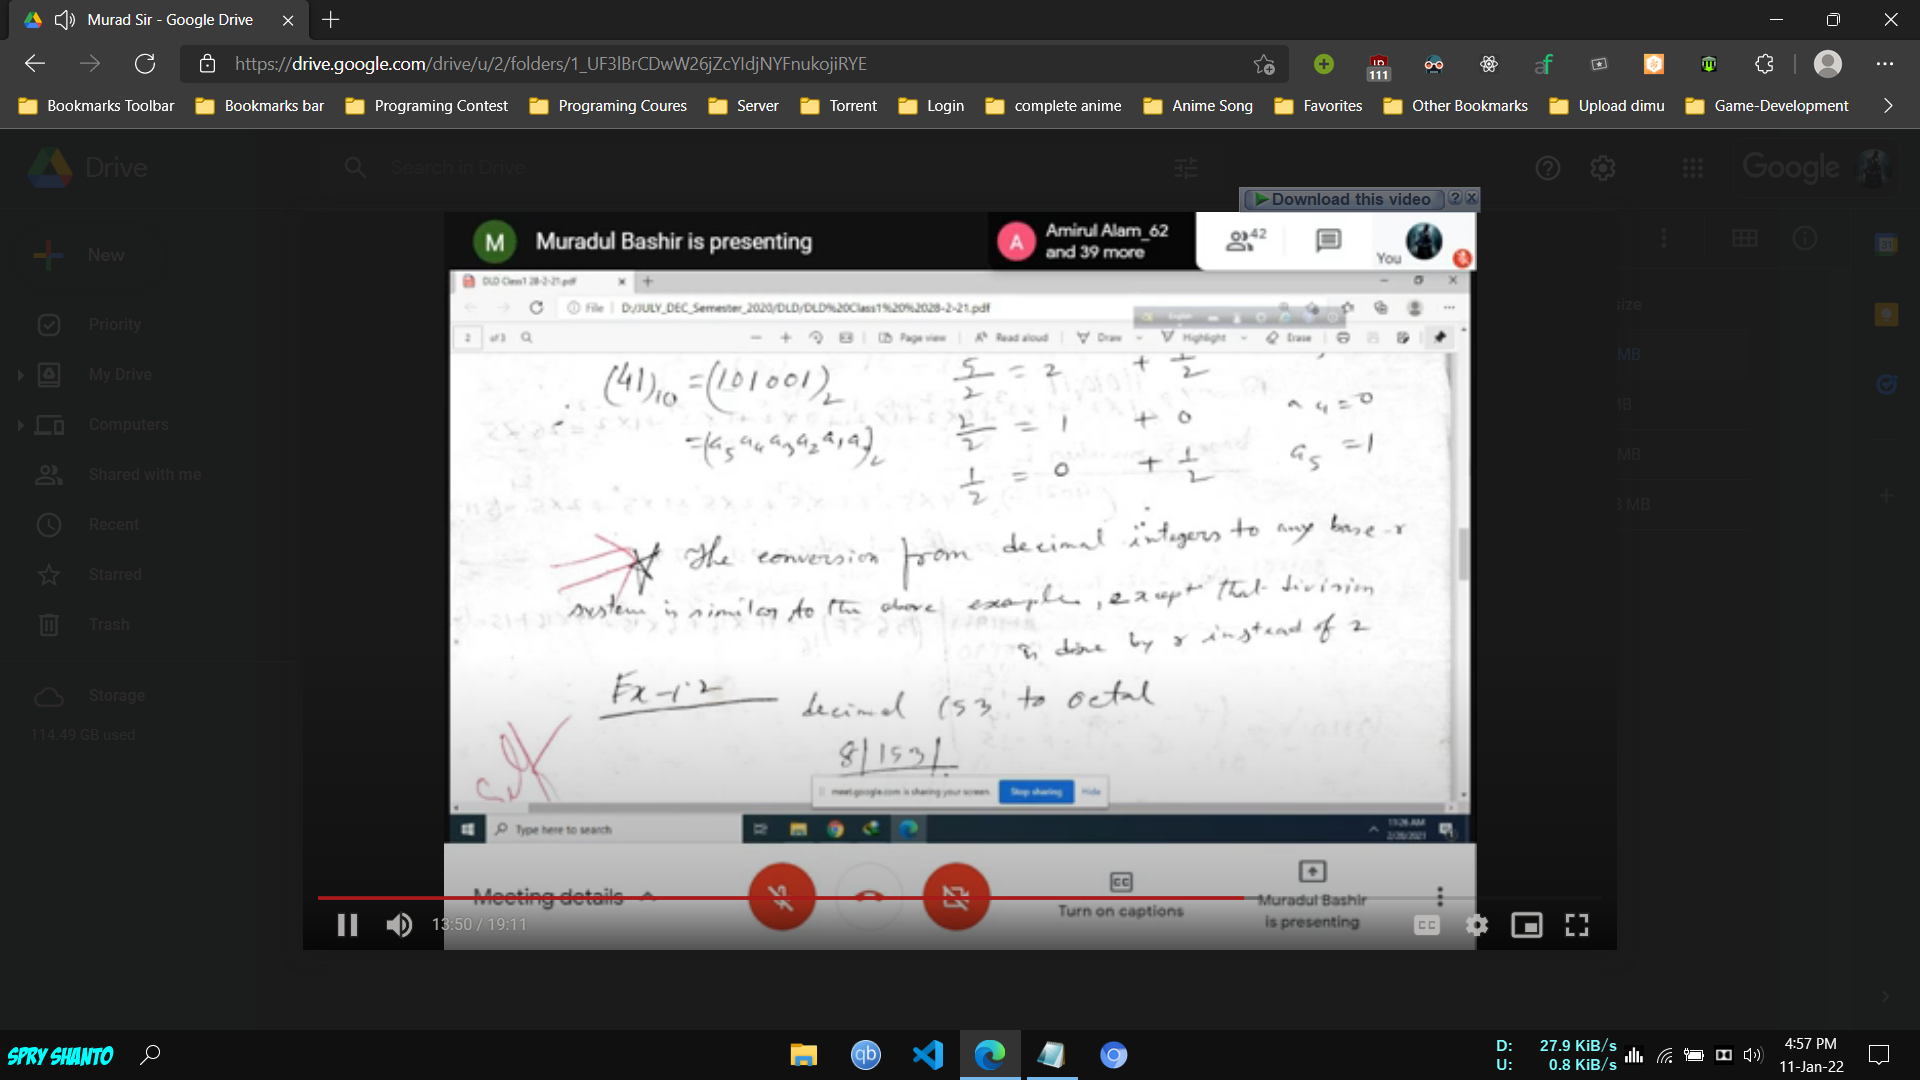 Murad Sir - Google Drive
https://drive.google.com/drive/u/2/folders/1_UF3lBrCDwW26jZcYldjNYFnukojiRYE
111
Bookmarks Toolbar
Bookmarks bar
Programing Contest
Programing Coures
Server
Torrent
Login
complete anime
Anime Song
Favorites
Other Bookmarks
Upload dimu
Game-Development
Drive
Search in Drive
Google
Download this video
New
Priority
My Drive
Computers
Shared with me
Recent
Starred
Trash
Storage
114.49 GB used
M
Muradul Bashir is presenting
A
Amirul Alam_62
and 39 more
42
You
DLD Class1 28-2-21.pdf
File
D:/JULY_DEC_Semester_2020/DLD/DLD%20Class1%20%2028-2-21.pdf
2 of 3
Page view
Read aloud
Draw
Highlight
Erase
(41)10 = (101001)2
5/2 = 2 + 1/2
2/2 = 1 + 0 a4=0
1/2 = 0 + 1/2 a5=1
The conversion from decimal integers to any base-r
system is similar to the above example, except that division
is done by r instead of 2
Ex-1.2
decimal 153 to octal
8|153|
meet.google.com is sharing your screen.
Stop sharing
Hide
Type here to search
11:26 AM
2/28/2021
Meeting details
Turn on captions
Muradul Bashir
is presenting
13:50 / 19:11
SPRY SHANTO
D: 27.9 KiB/s
U: 0.8 KiB/s
4:57 PM
11-Jan-22